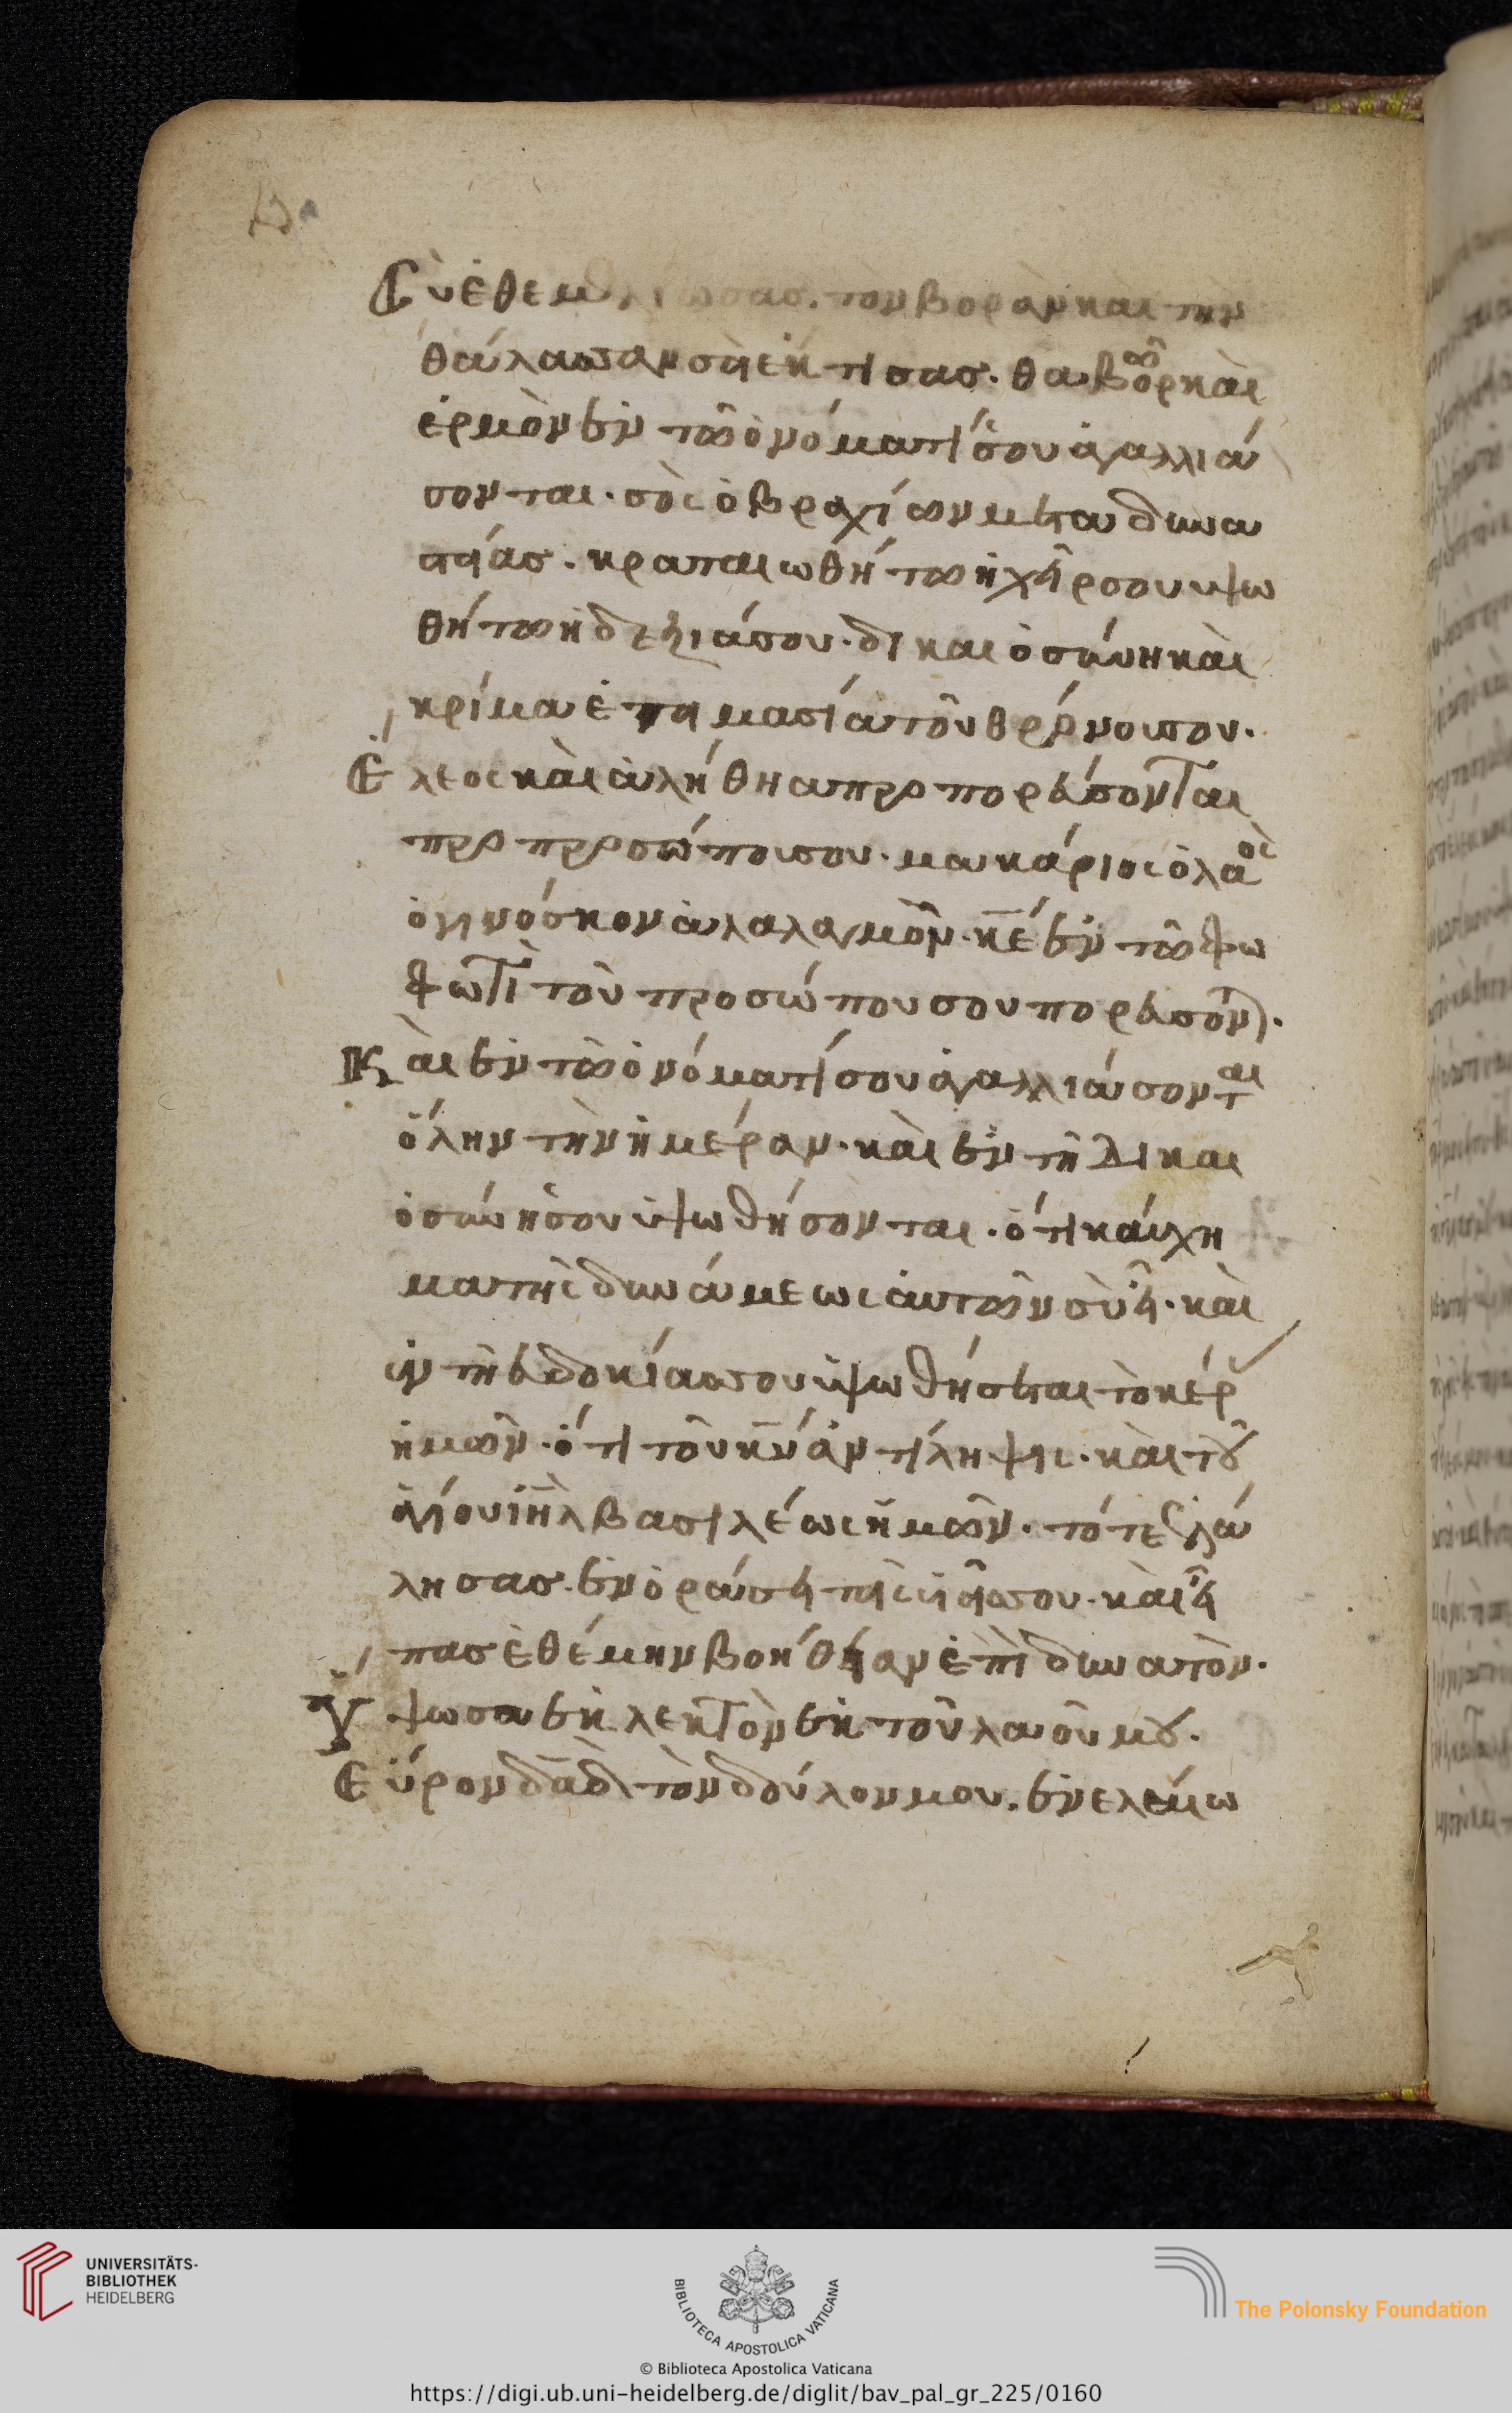 Σὺ ἐθεμελίωσας. τὸν βορὰν και την
θάλασσαν σὺ ἔκτισας. θαβὼρ καὶ
ἑρμὸν ἐν τῶ ὀνόματί σου ἀγαλλιά
σονται. σὸς ὁ βραχίων μετὰ δυνα
στείας. κραταιωθήτω ἡ χεῖρ σου ὑψω
θήτω ἡ δεξιά σου. δικαιοσύνη καὶ
κρίμα ἑτοιμασία τοῦ θρόνου σου.
Ἔλεος καὶ ἀλήθηα προπορεύσονται
προ προσώπου σου. μακάριος ὁ λαὸς
ὁ γινόσκον ἀλαλαγμὸν. κε̅ ἐν τῶ φω
φωτὶ τοῦ προσώπου σου πορεύσον).
Καὶ ἐν τῶ ὀνόματί σου ἀγαλλιάσονται
ὅλην τὴν ἡμέραν. καὶ ἐν τῆ δικαι
οσύνη σου ὑψωθήσονται. ὅτι κάυχη
μα τῆς δυνάμεως ἀυτῶν σὺ εἶ. καὶ
ἐν τῆ ἐυδοκία σου ὑψωθήσεται τὸ κέρ
ἡμῶν. ὅτι τοῦ κυ̅ ἀντίληψις. καὶ τοῦ
ἁγίου ιηλ̅ βασιλέως ἡμῶν. τότε ἐλά
λησας. ἐν ὁράσει τοῖς υἱοῖς σου. καὶ εἶ
πας ἐθέμην βοήθειαν ἐπὶ δυνατὸν.
Ὕψωσα ἐκλεκτὸν ἐκ τοῦ λαοῦ μου.
Εὗρον δαδ̅ τὸν δούλον μου. ἐν ελέω
UNIVERSITÄTS-
BIBLIOTHEK
HEIDELBERG
BIBLIOTECA APOSTOLICA VATICANA
The Polonsky Foundation
© Biblioteca Apostolica Vaticana
https://digi.ub.uni-heidelberg.de/diglit/bav_pal_gr_225/0160